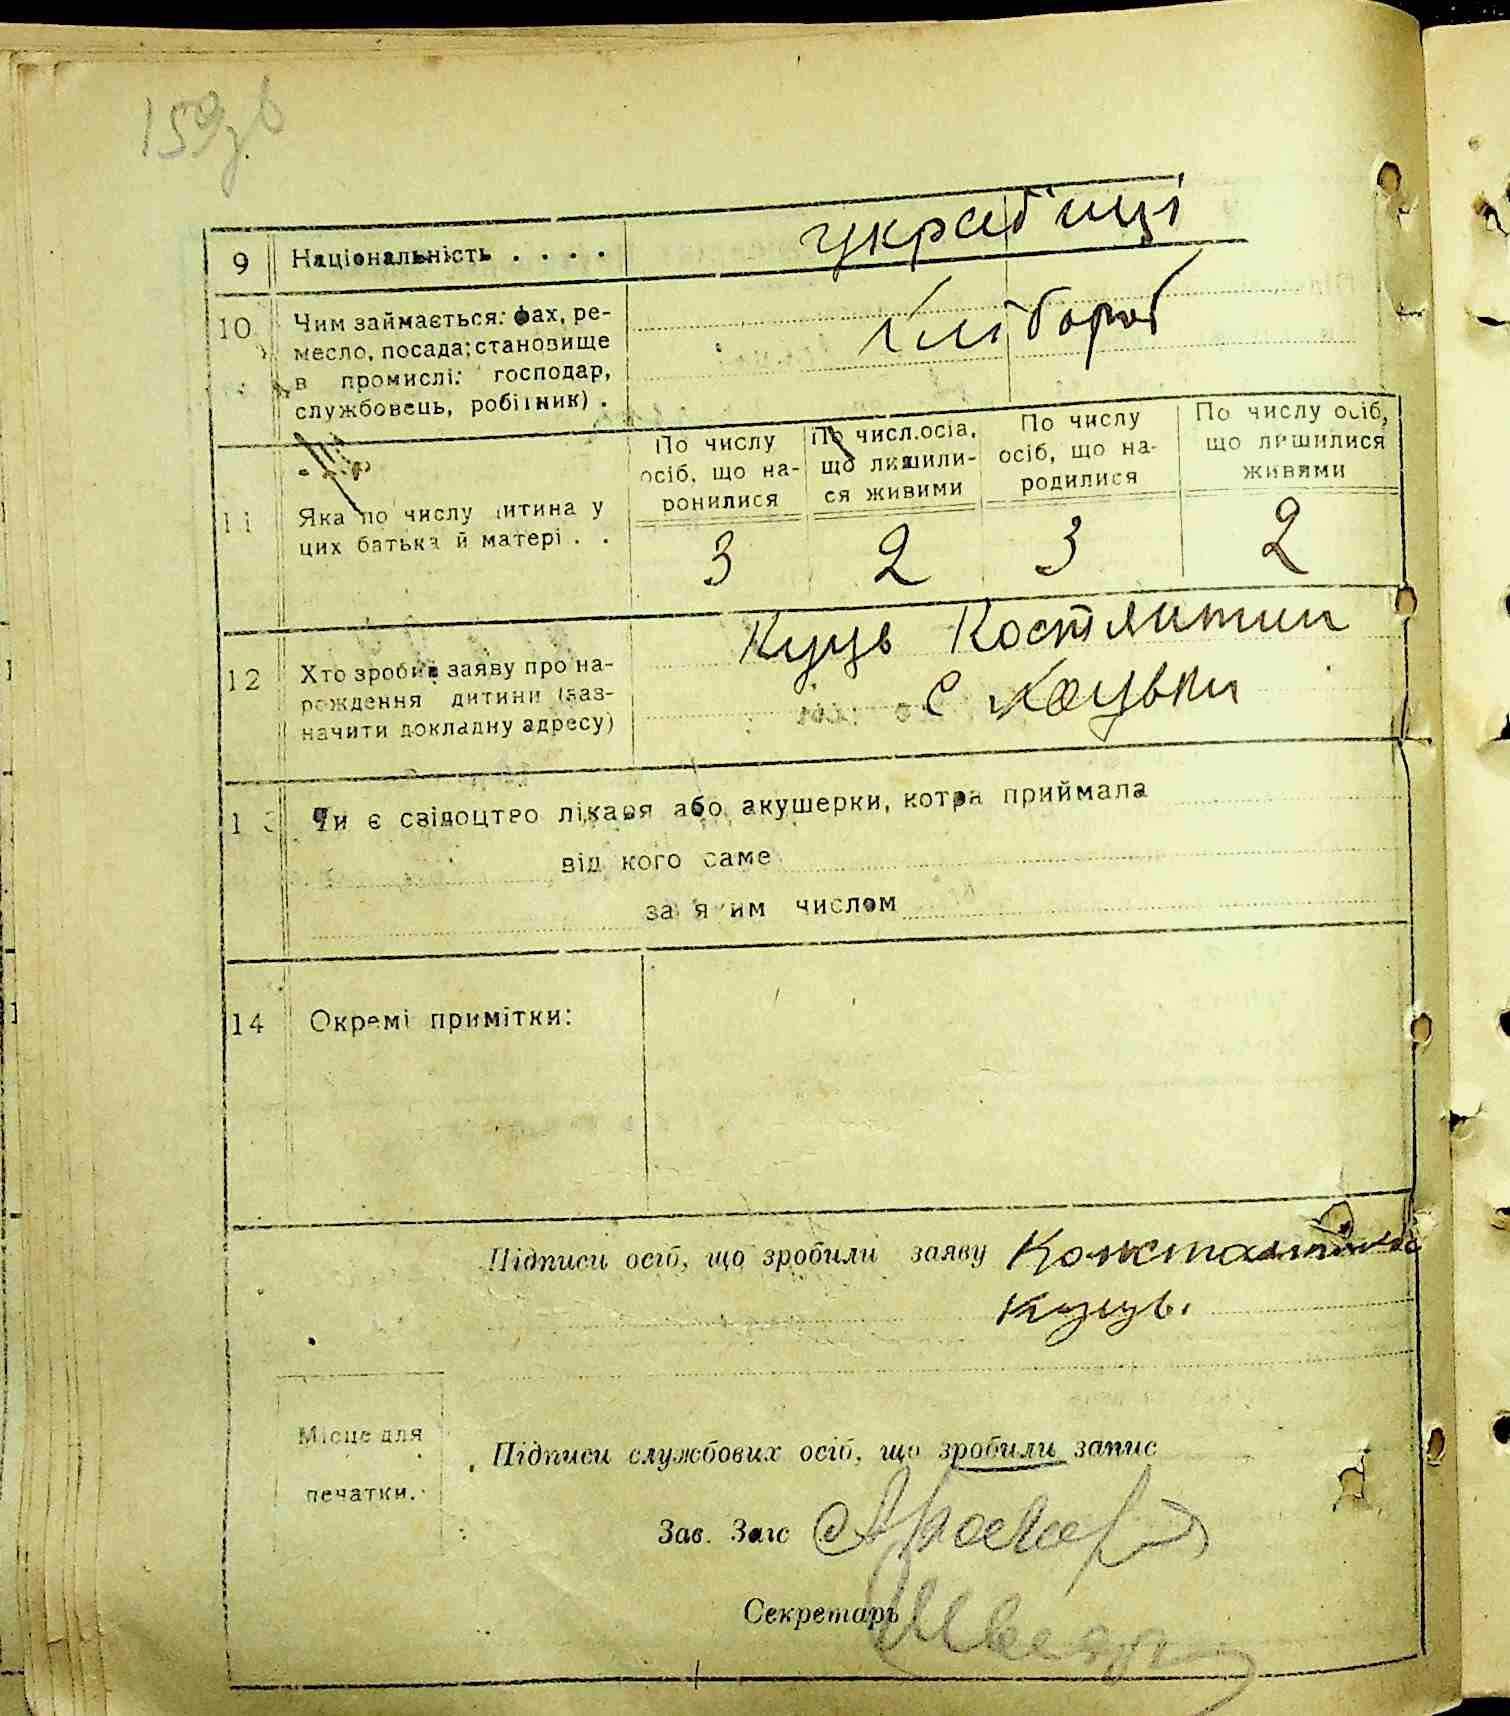 159зв
9 Національність . . . .
украб'иці
10 Чим займається: фах, ре-
месло, посада; становище
в промислі: господар,
службовець, робітник) .
хлібороб
По числу осіб, що на- ронилися
По числ.осіа, що лишили- ся живими
По числу осіб, що на- родилися
По числу осіб, що лишилися живими
11 Яка по числу дитина у
цих батька й матері . .
3 2 3 2
12 Хто зробив заяву про на-
рождення дитини (заз-
начити докладну адресу)
Куць Костянтин
с Коцюбки
13 Чи є свідоцтво лікаря або акушерки, котра приймала
від кого саме
за яким числом
14 Окремі примітки:
Підписи осіб, що зробили заяву Константин
Куць.
Місце для
печатки.
Підписи службових осіб, що зробили запис
Зав. Загс
Секретарь